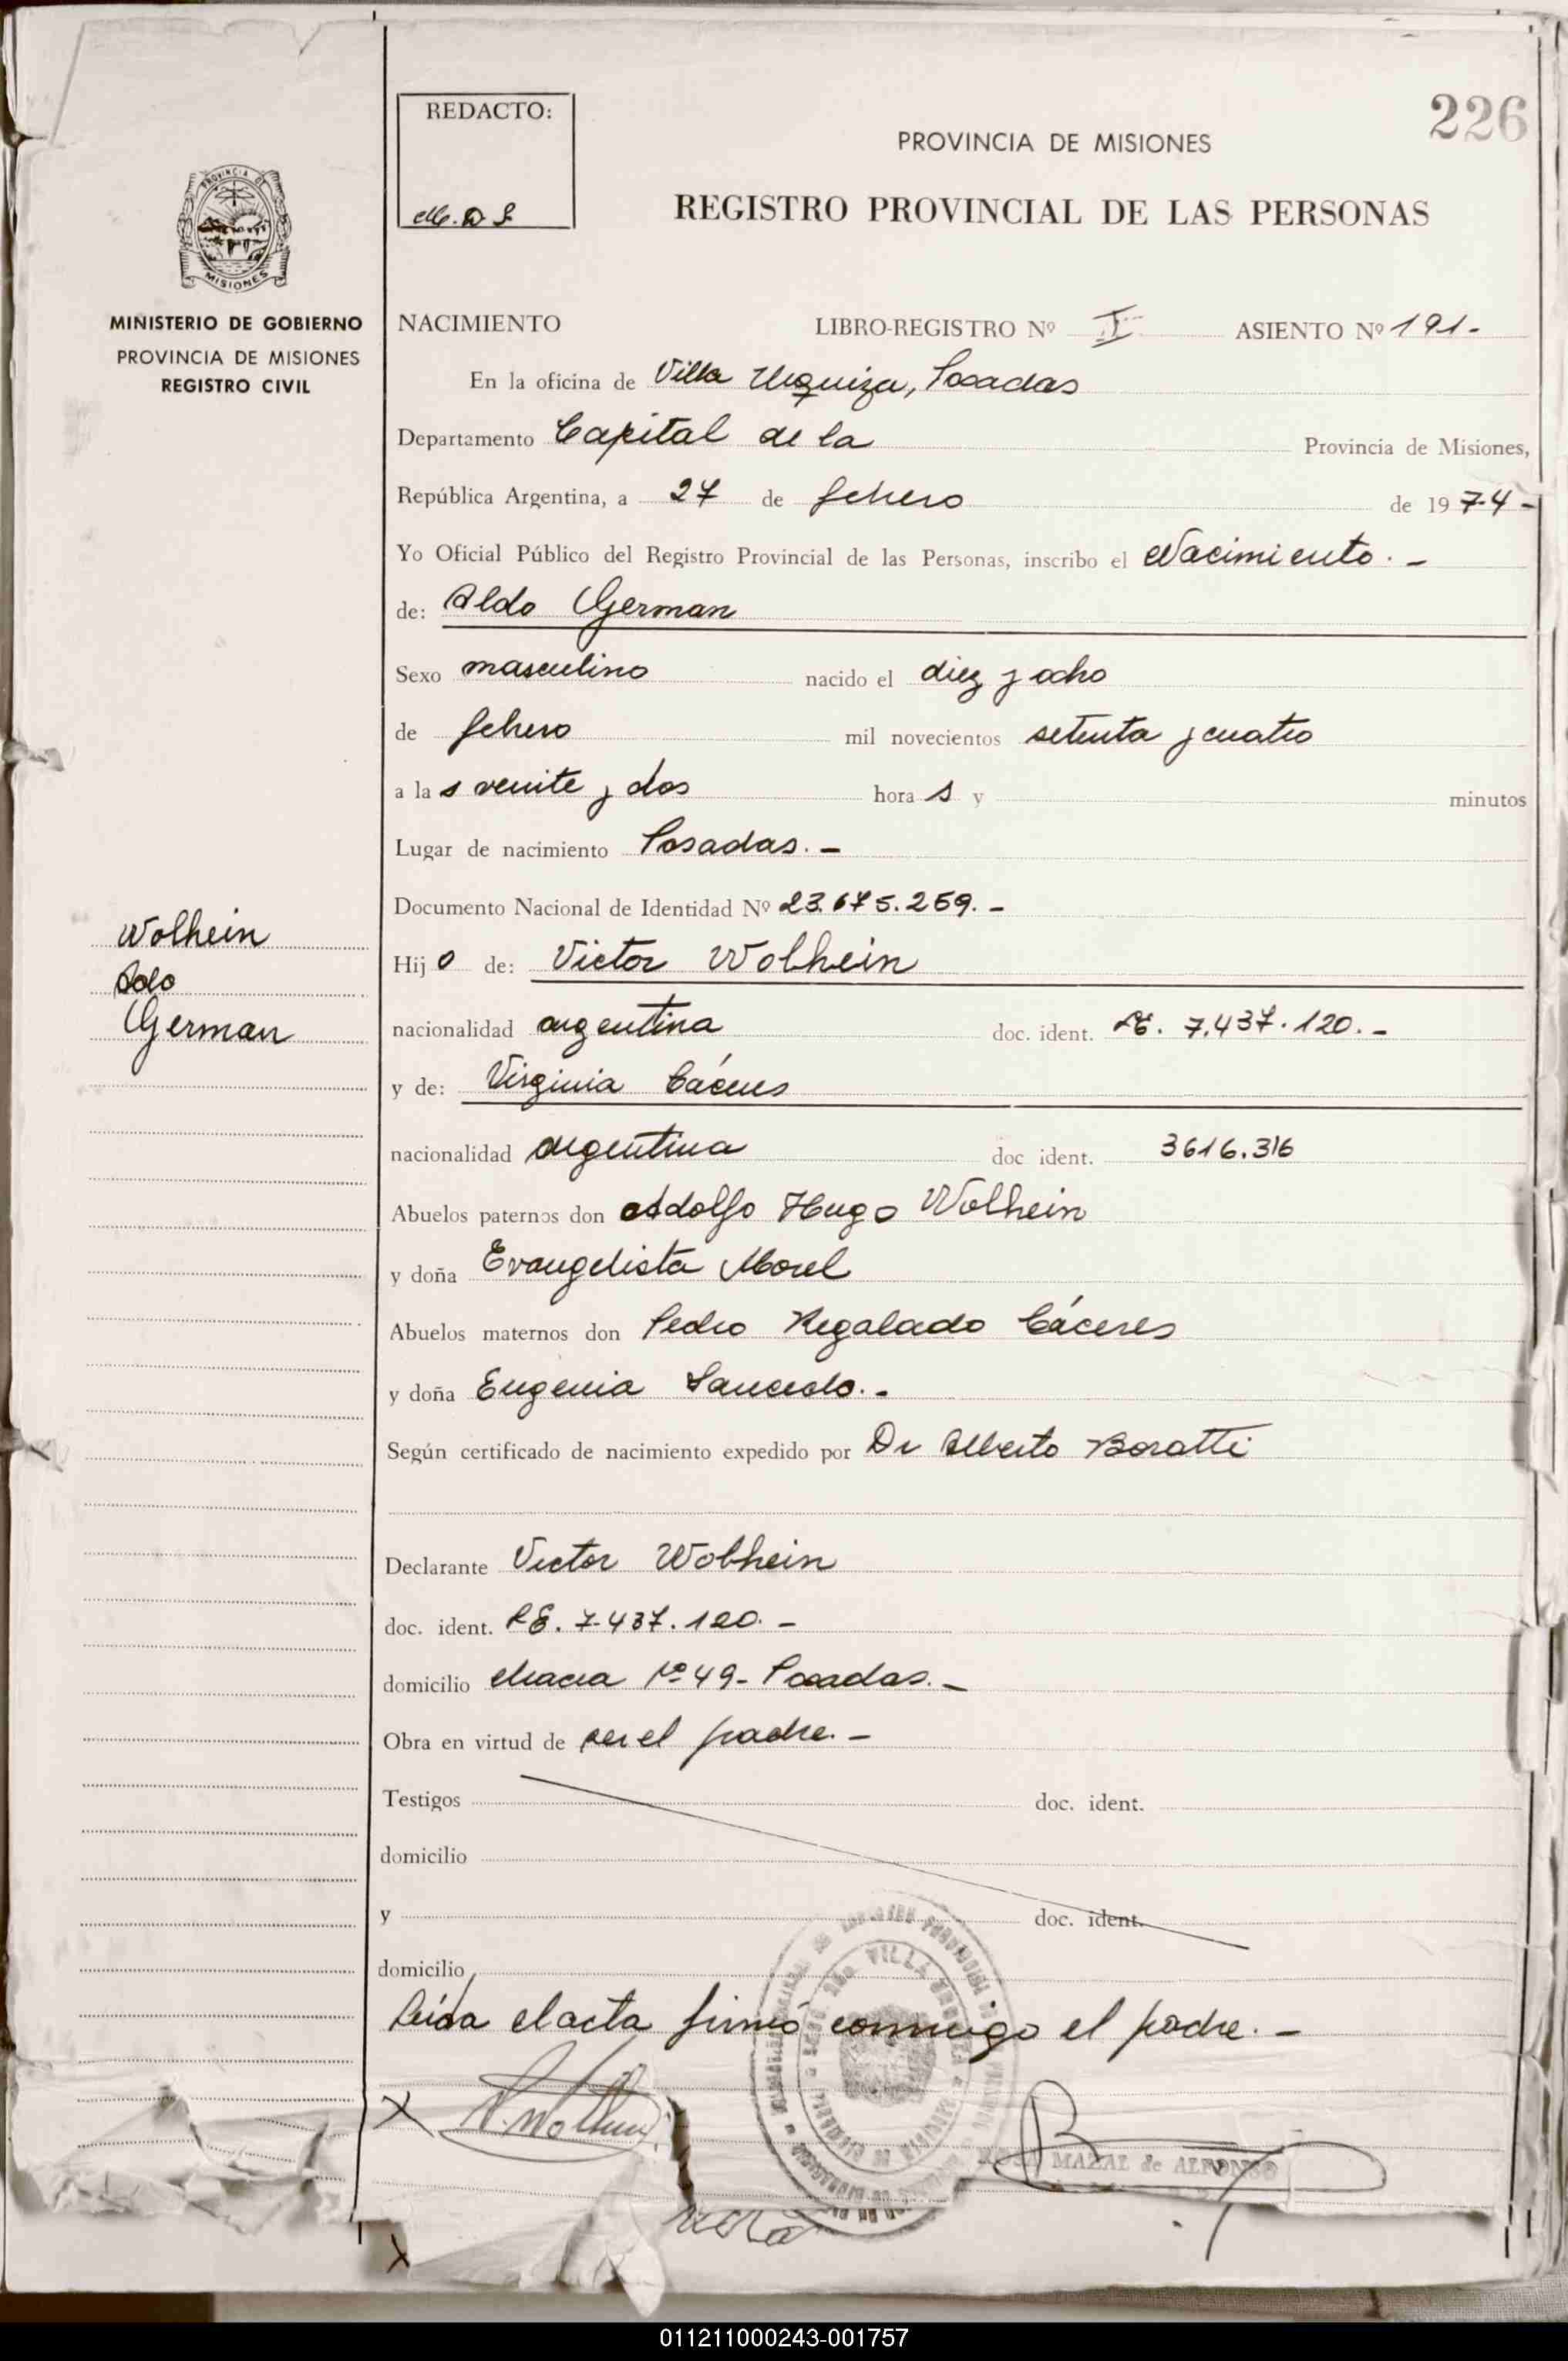 226
REDACTO:
PROVINCIA DE MISIONES
REGISTRO PROVINCIAL DE LAS PERSONAS
PROVINCIA DE
MISIONES
MINISTERIO DE GOBIERNO
PROVINCIA DE MISIONES
REGISTRO CIVIL
NACIMIENTO LIBRO-REGISTRO Nº I ASIENTO Nº 191-
En la oficina de Villa Urquiza, Posadas
Departamento Capital de la Provincia de Misiones,
República Argentina, a 27 de febrero de 1974-
Yo Oficial Público del Registro Provincial de las Personas, inscribo el Nacimiento.-
de: Aldo German
Sexo masculino nacido el diez y ocho
de febrero mil novecientos setenta y cuatro
a las veinte y dos horas y minutos
Lugar de nacimiento Posadas.-
Documento Nacional de Identidad Nº 23.675.259.-
Wolhein
Aldo
German
Hijo de: Victor Wolhein
nacionalidad argentina doc. ident. LE. 7.437.120.-
y de: Virginia Cáceres
nacionalidad argentina doc ident. 3616.316
Abuelos paternos don Adolfo Hugo Wolhein
y doña Evangelista Morel
Abuelos maternos don Pedro Regalado Cáceres
y doña Eugenia Saucedo.-
Según certificado de nacimiento expedido por Dr Alberto Boratti
Declarante Victor Wolhein
doc. ident. LE. 7.437.120.-
domicilio chacra Nº 49- Posadas.-
Obra en virtud de ser el padre.-
Testigos doc. ident.
domicilio
y doc. ident.
domicilio
Leída el acta firmó conmigo el padre.-
VILLA URQUIZA
MAZAL de ALFONSO
011211000243-001757